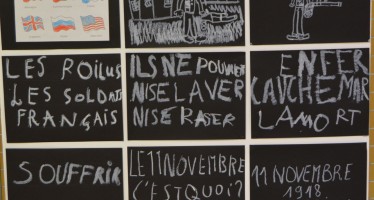 LES POILUS
LES SOLDATS
FRANÇAIS
ILS NE POUVAIENT
NI SE LAVER
NI SE RASER
ENFER
CAUCHEMAR
LA MORT
SOUFFRIR
LE 11 NOVEMBRE
C'EST QUOI?
11 NOVEMBRE
1918